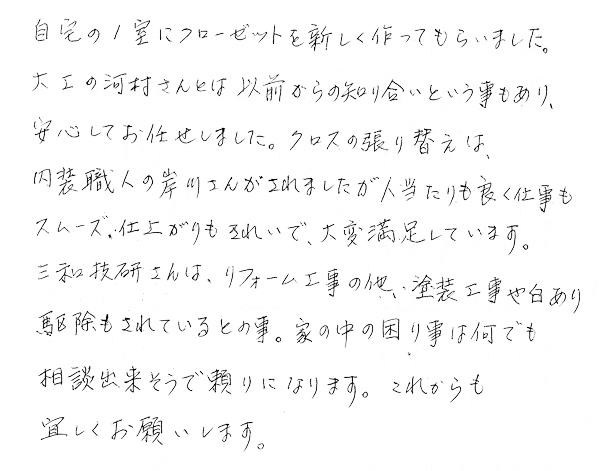 自宅の1室にクローゼットを新しく作ってもらいました。
大工の河村さんとは以前からの知り合いという事もあり、
安心してお任せしました。クロスの張り替えは、
内装職人の岸川さんがされましたが人当たりも良く仕事も
スムーズ、仕上がりもきれいで、大変満足しています。
三和技研さんは、リフォーム工事の他、塗装工事や白あり
駆除もされているとの事。家の中の困り事は何でも
相談出来そうで頼りになります。これからも
宜しくお願いします。